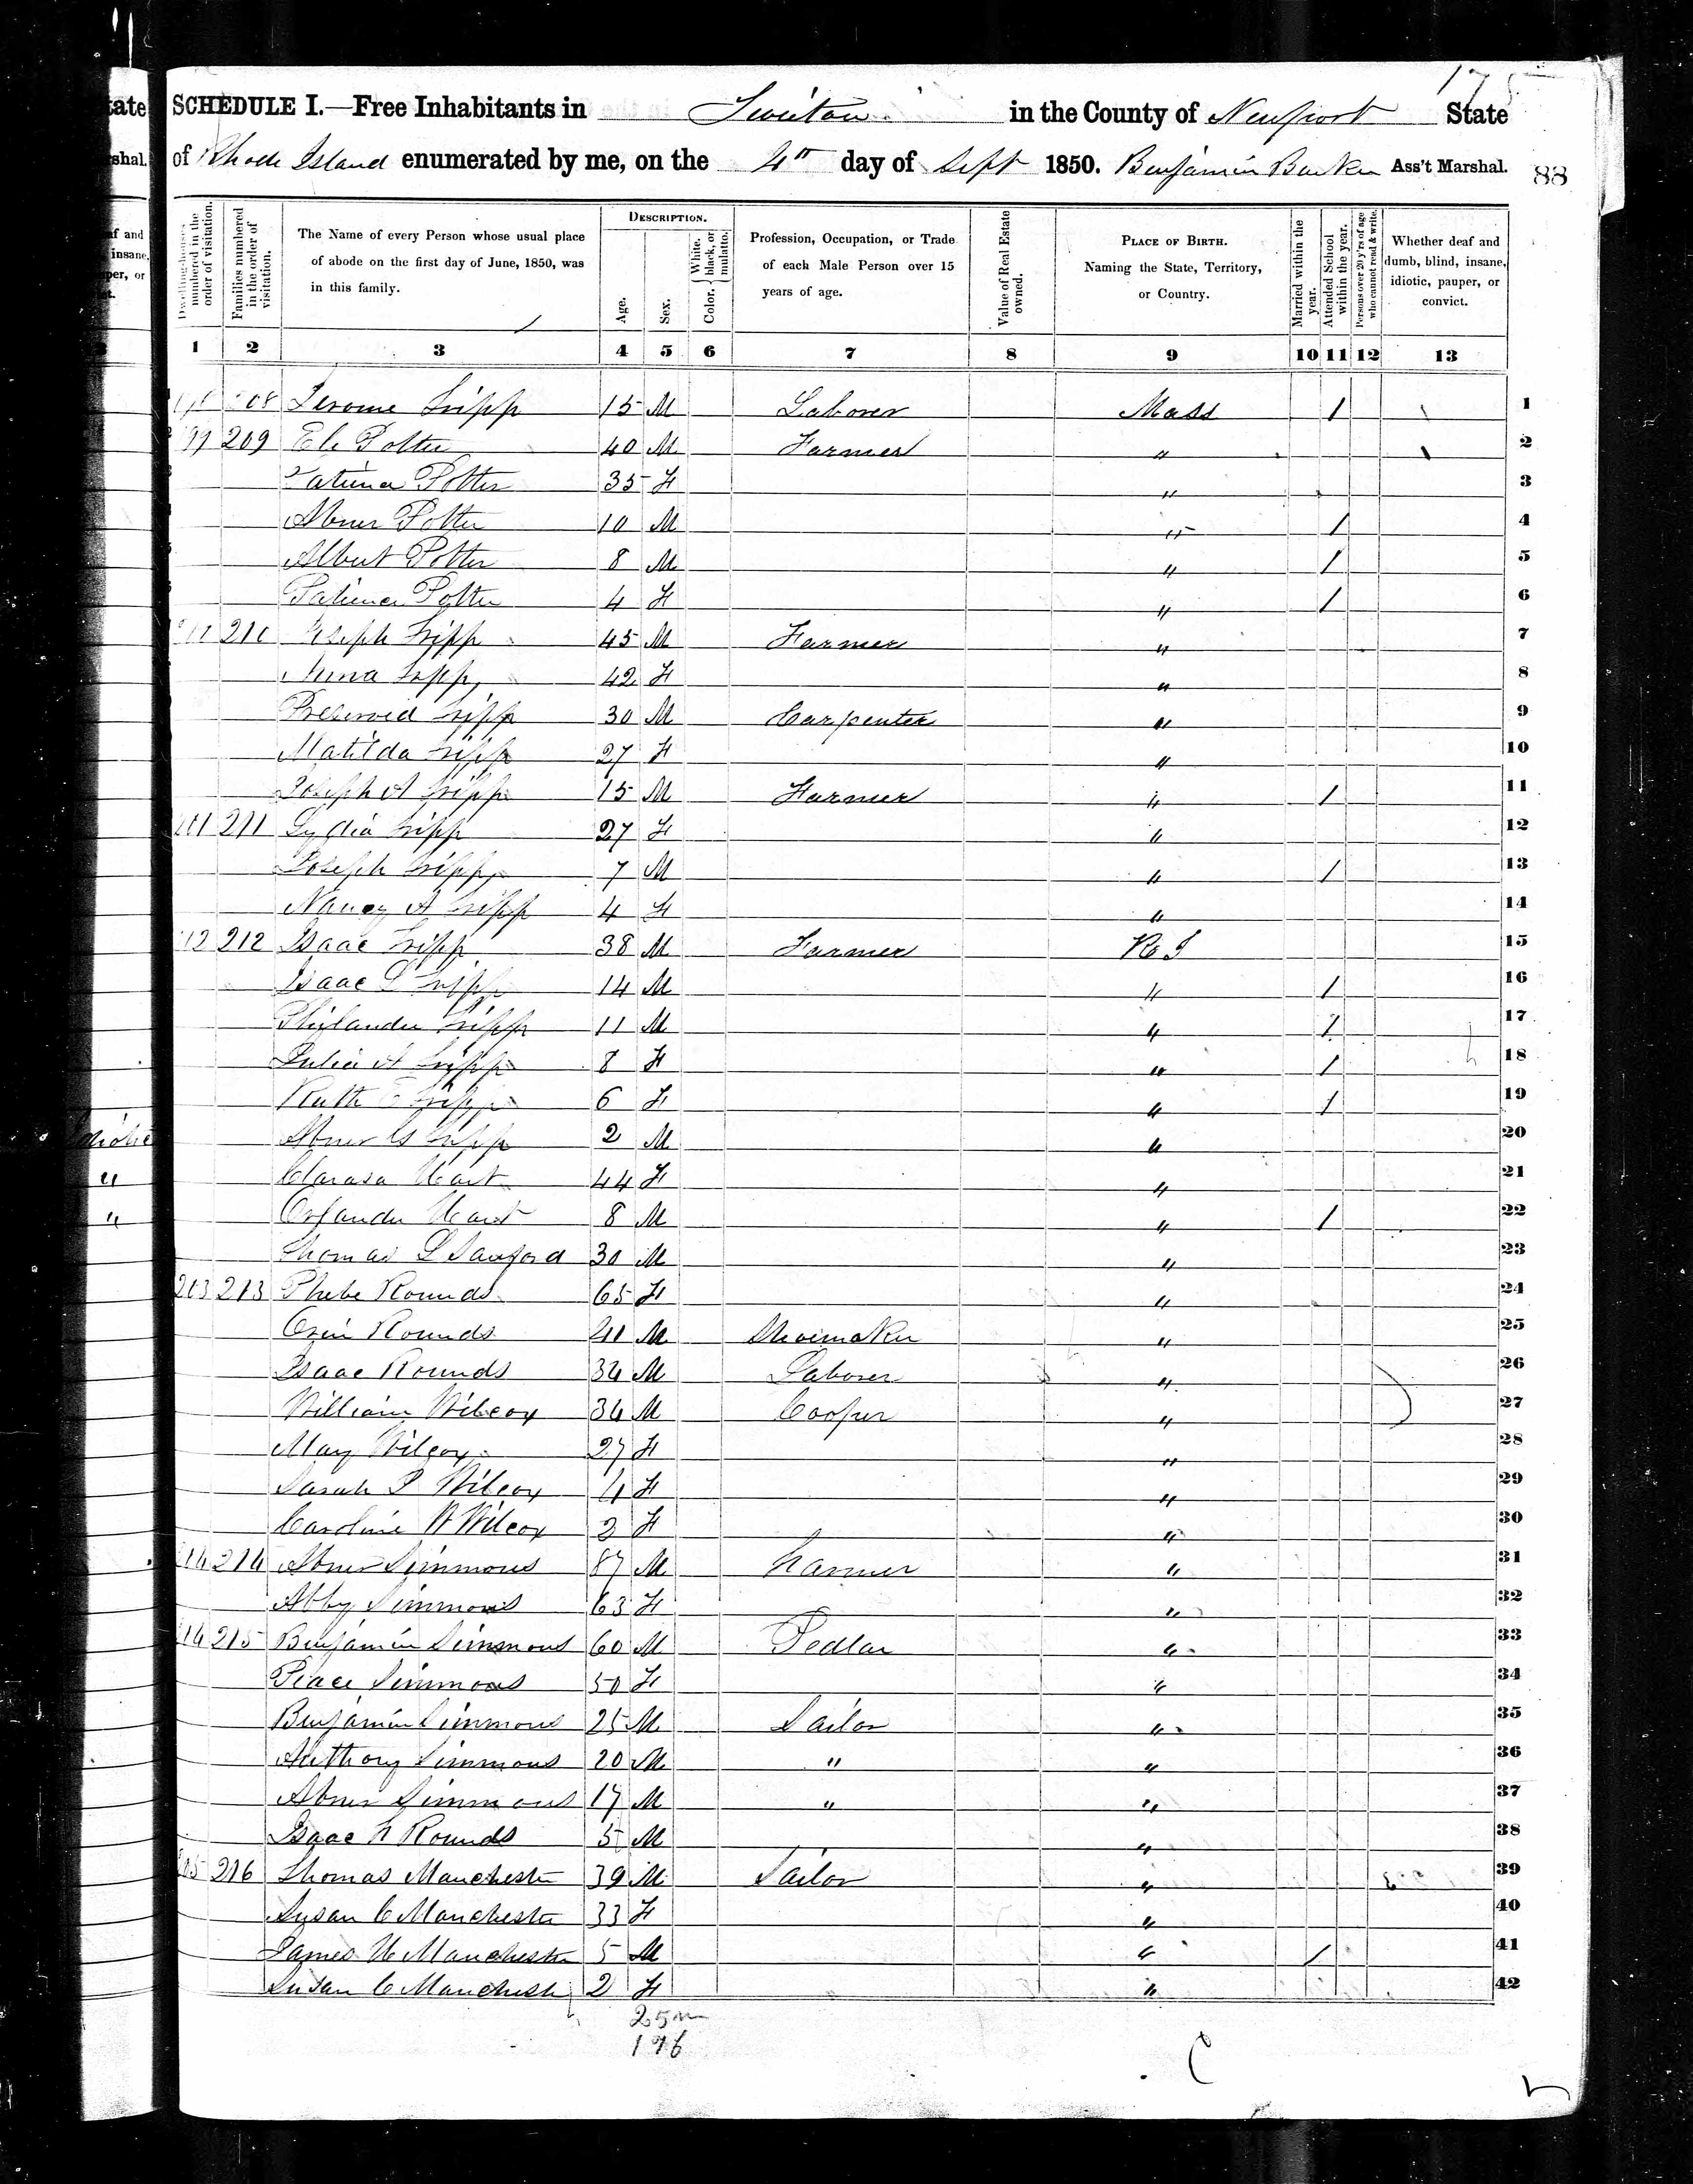 175
SCHEDULE I.—Free Inhabitants in Tiverton in the County of Newport State
of Rhode Island enumerated by me, on the 4th day of Sept 1850. Benjamin Barker Ass't Marshal.
88
Dwelling-houses numbered in the order of visitation.
Families numbered in the order of visitation.
The Name of every Person whose usual place of abode on the first day of June, 1850, was in this family.
DESCRIPTION.
Age.
Sex.
Color. { White, black, or mulatto.
Profession, Occupation, or Trade of each Male Person over 15 years of age.
Value of Real Estate owned.
PLACE OF BIRTH. Naming the State, Territory, or Country.
Married within the year.
Attended School within the year.
Persons over 20 y'rs of age who cannot read & write.
Whether deaf and dumb, blind, insane, idiotic, pauper, or convict.
1 2 3 4 5 6 7 8 9 10 11 12 13
208 Jerome Tripp 15 M Laborer Mass / 1
209 Potter 40 M Farmer " 2
Potter 35 F " 3
Abner Potter 10 M " / 4
Albert Potter 8 M " / 5
Patience Potter 4 F " / 6
210 Joseph Tripp 45 M Farmer " 7
Tripp 42 F " 8
Preserved Tripp 30 M Carpenter " 9
Matilda Tripp 27 F " 10
Joseph A Tripp 15 M Farmer " / 11
211 Lydia Tripp 27 F " 12
Joseph Tripp 7 M " / 13
Nancy A Tripp 4 F " 14
212 Isaac Tripp 38 M Farmer R I 15
Isaac Tripp 14 M " / 16
Philander Tripp 11 M " / 17
Julia A Tripp 8 F " / 18
Ruth E Tripp 6 F " / 19
Abner G Tripp 2 M " 20
Hart 44 F " 21
Hart 8 M " / 22
Thomas L Sanford 30 M " 23
213 213 Phebe Rounds 65 F " 24
Rounds 41 M Shoemaker " 25
Isaac Rounds 34 M Laborer " 26
William Wilcox 34 M Cooper " 27
Mary Wilcox 27 F " 28
Sarah P Wilcox 4 F " 29
Caroline W Wilcox 2 F " 30
214 Abner Simmons 87 M Farmer " 31
Abby Simmons 63 F " 32
215 Benjamin Simmons 60 M Pedlar " 33
Peace Simmons 50 F " 34
Benjamin Simmons 25 M Sailor " 35
Anthony Simmons 20 M " " 36
Abner Simmons 17 M " " 37
Isaac N Rounds 5 M " 38
216 Thomas Manchester 39 M Sailor " 39
Susan C Manchester 33 F " 40
James H Manchester 5 M " / 41
Susan C Manchester 2 F " 42
25m